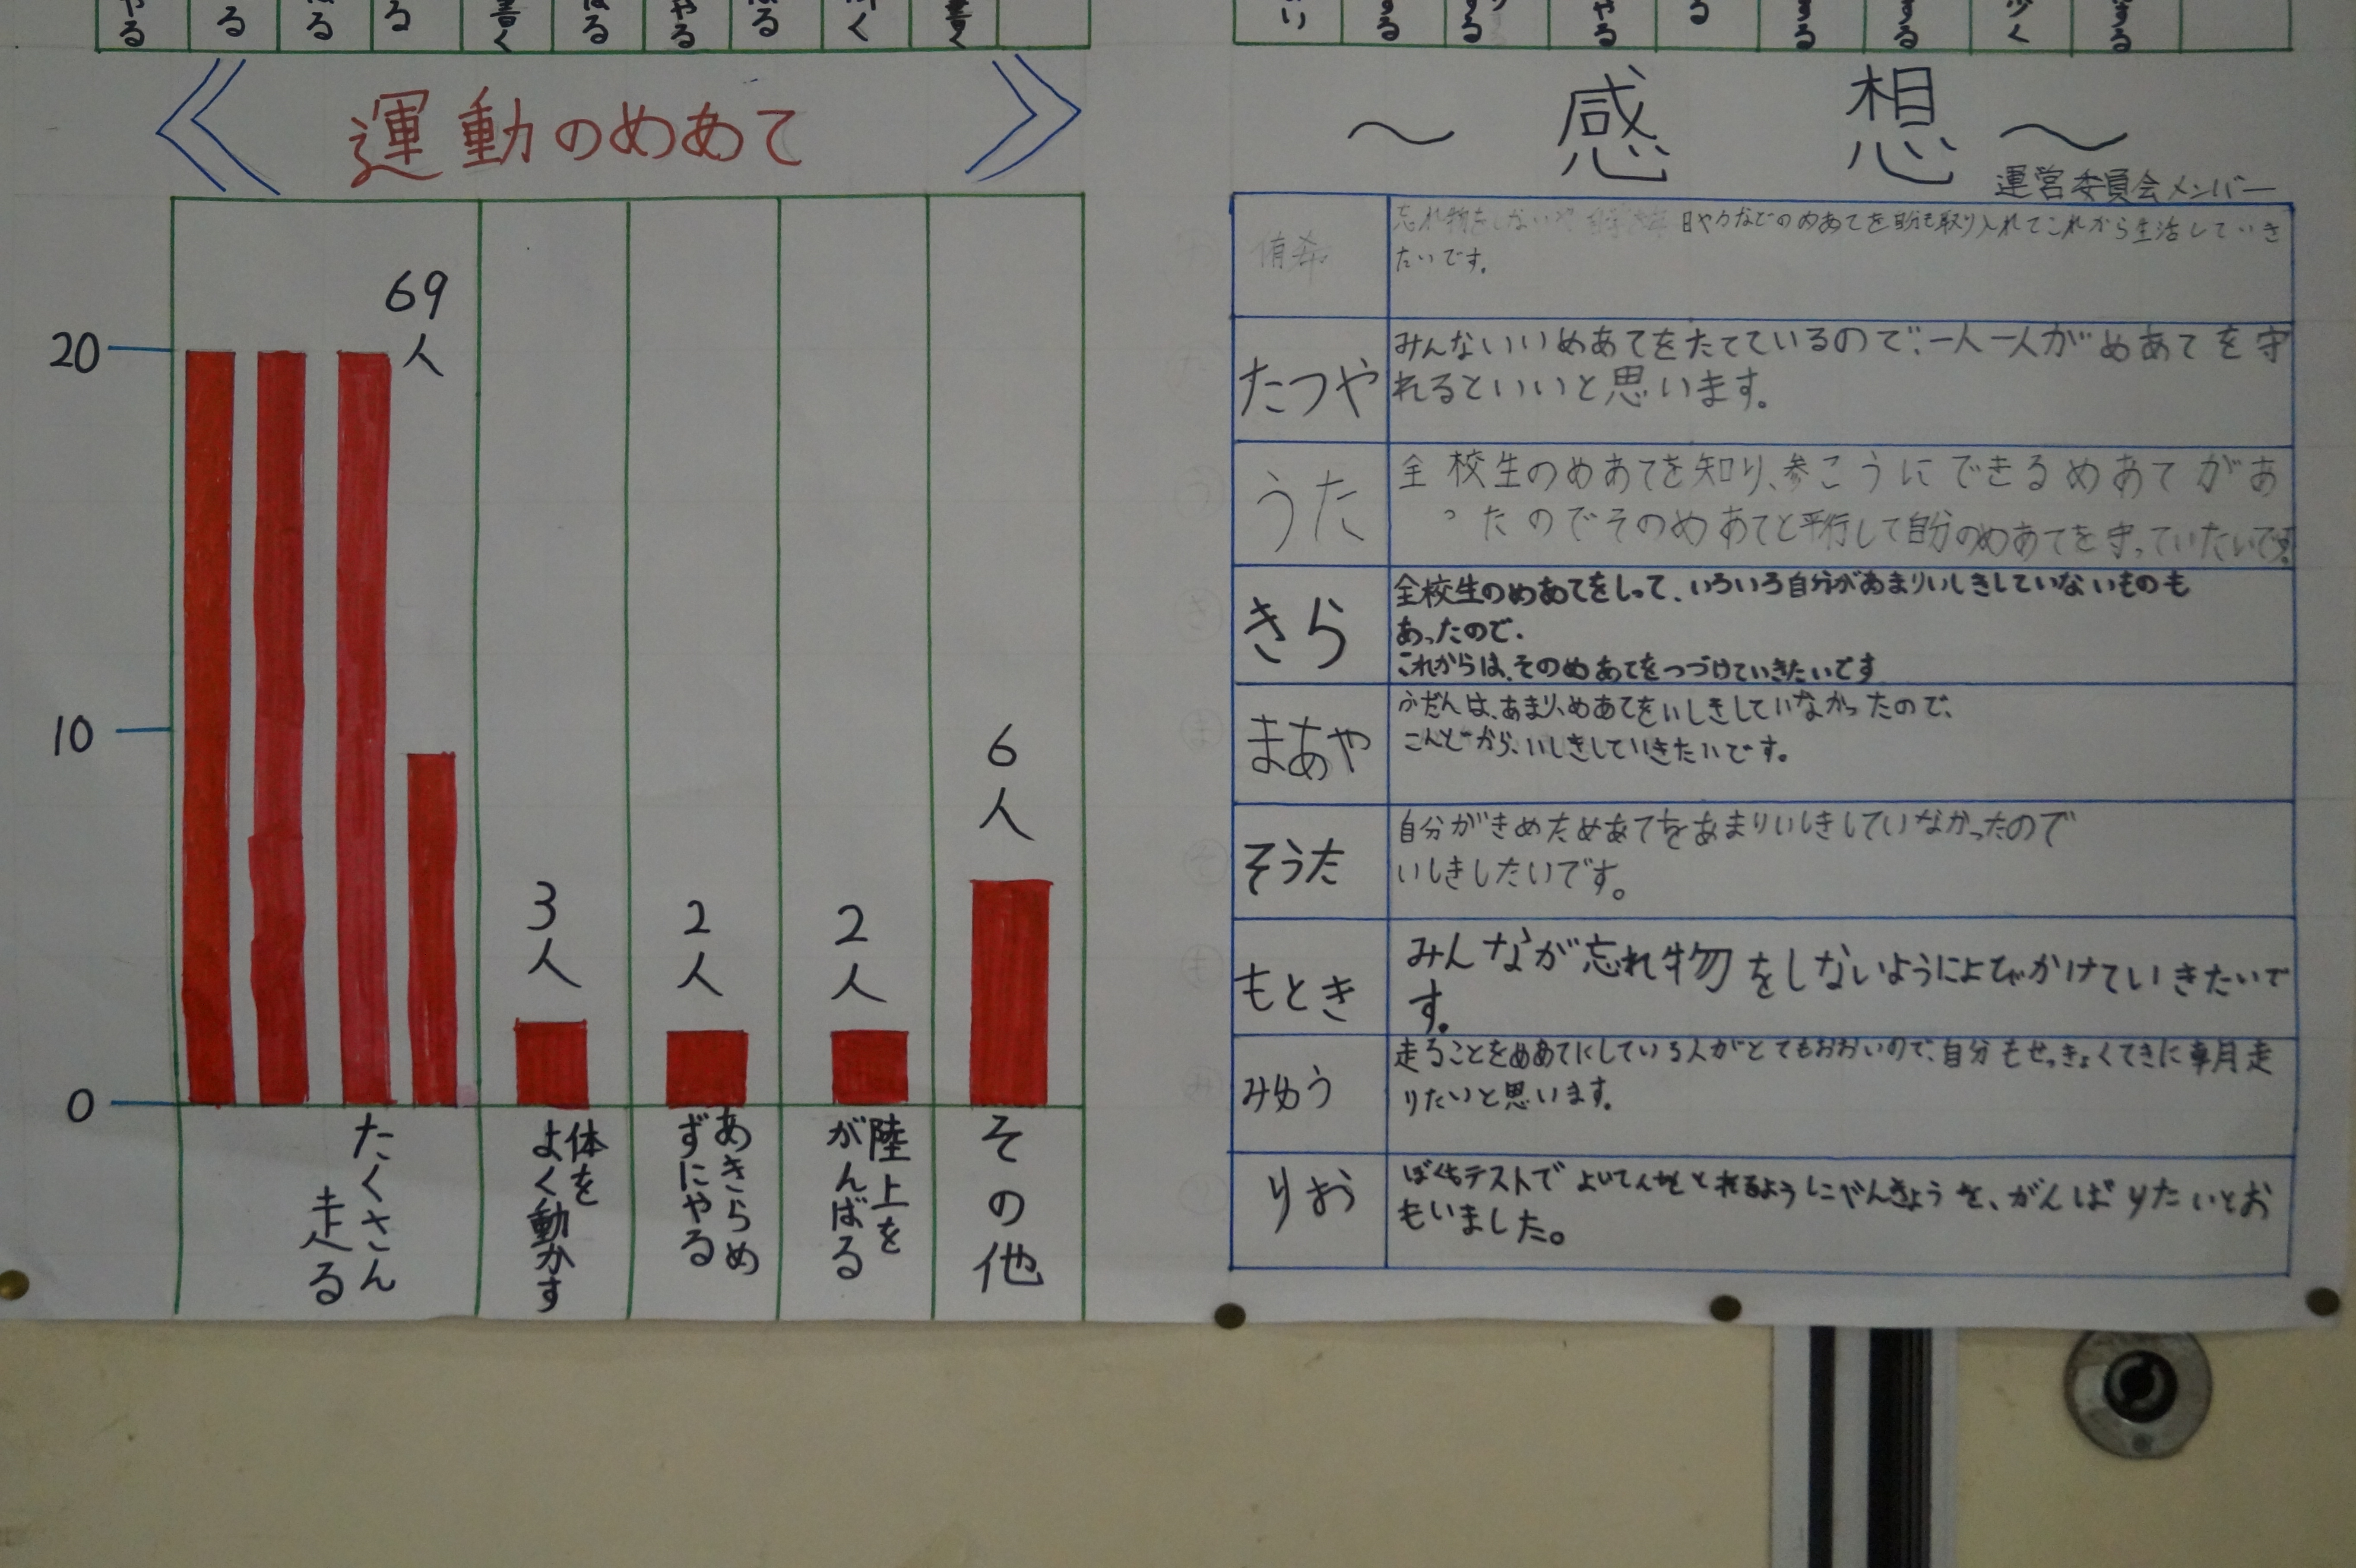 運動のめあて
20
10
0
69人
3人
2人
2人
6人
たくさん
走る
体を
よく動かす
あきらめ
ずにやる
陸上を
がんばる
その他
〜 感 想 〜
運営委員会メンバー
侑希
忘れ物をしないや
日やカなどのめあてを自分も取り入れてこれから生活していき
たいです。
たつや
みんないいめあてをたてているので、一人一人がめあてを守
れるといいと思います。
うた
全校生のめあてを知り、参こうにできるめあてがあ
ったのでそのめあてと平行して自分のめあてを守っていたいです。
きら
全校生のめあてをしって、いろいろ自分があまりいしきしていないものも
あったので、
これからは、そのめあてをつづけていきたいです
まあや
ふだんは、あまり、めあてをいしきしていなかったので、
こんどから、いしきしていきたいです。
そうた
自分がきめためあてをあまりいしきしていなかったので
いしきしたいです。
もとき
みんなが忘れ物をしないようによびかけていきたいで
す。
みゆう
走ることをめあてにしている人がとてもおおいので、自分もせっきょくてきに朝走
りたいと思います。
りお
ぼくもテストでよいてんをとれるようにべんきょうを、がんばりたいとお
もいました。